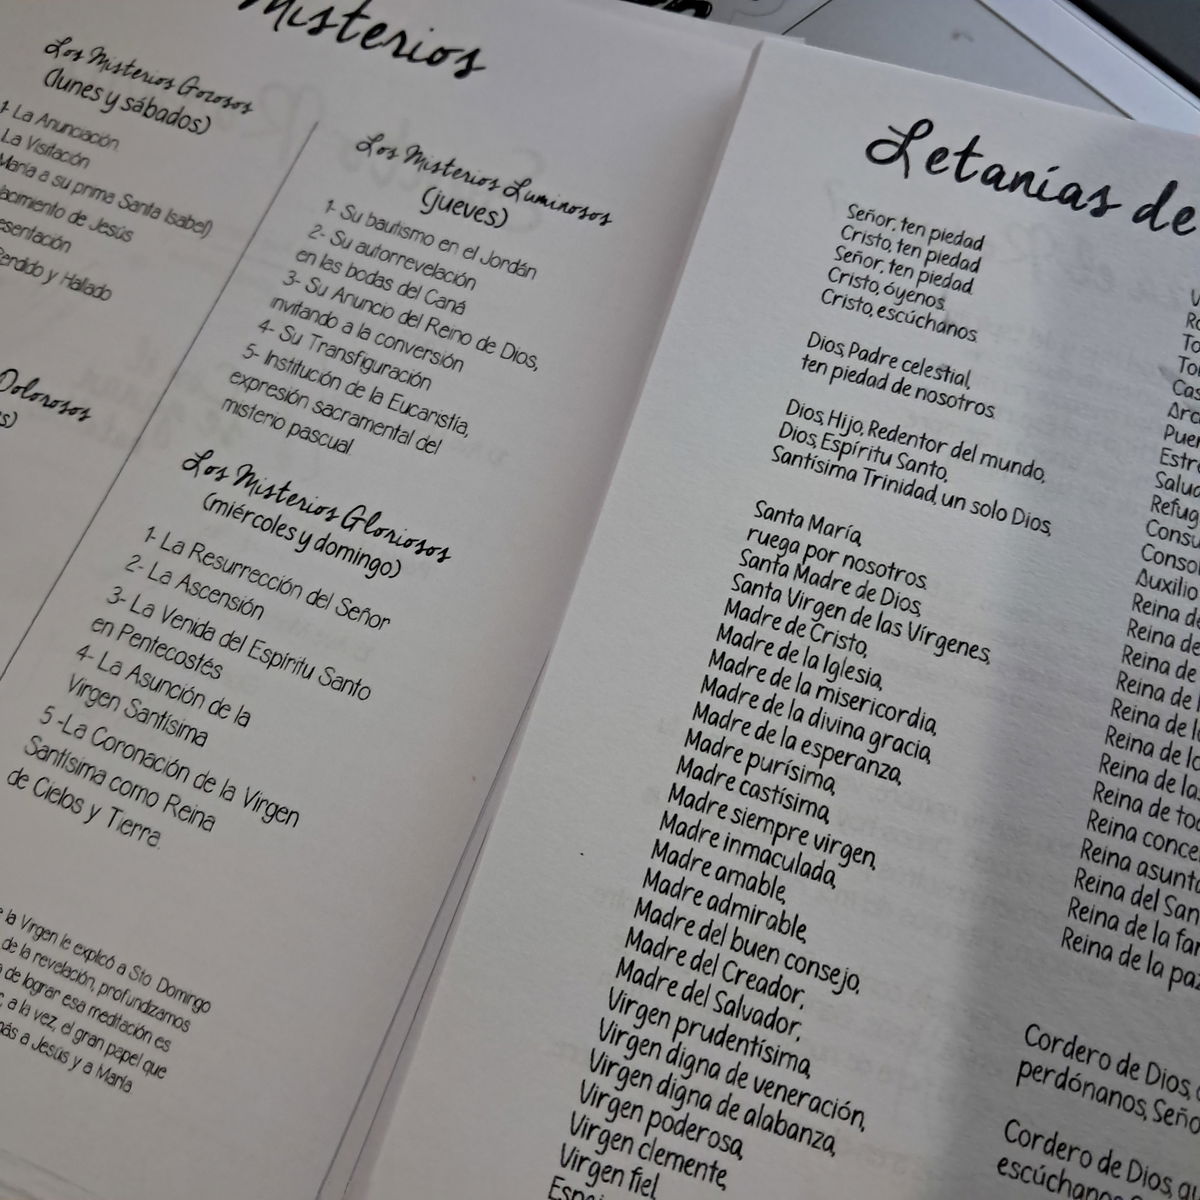 Misterios
Los Misterios Gozosos
(lunes y sábados)
1- La Anunciación
La Visitación
María a su prima Santa Isabel)
de Jesús
Perdido y Hallado
Dolorosos
Los Misterios Luminosos
(jueves)
1- Su bautismo en el Jordán
2- Su autorrevelación
en las bodas del Caná
3- Su Anuncio del Reino de Dios,
invitando a la conversión
4- Su Transfiguración
5- Institución de la Eucaristía,
expresión sacramental del
misterio pascual.
Los Misterios Gloriosos
(miércoles y domingo)
1- La Resurrección del Señor
2- La Ascensión
3- La Venida del Espíritu Santo
en Pentecostés
4- La Asunción de la
Virgen Santísima
5 -La Coronación de la Virgen
Santísima como Reina
de Cielos y Tierra.
la Virgen le explicó a Sto. Domingo
de la revelación, profundizamos
de lograr esa meditación es
a la vez, el gran papel que
a Jesús y a María
Letanías de
Señor, ten piedad
Cristo, ten piedad
Señor, ten piedad.
Cristo, óyenos.
Cristo, escúchanos.
Dios, Padre celestial,
ten piedad de nosotros.
Dios, Hijo, Redentor del mundo,
Dios, Espíritu Santo,
Santísima Trinidad, un solo Dios,
Santa María,
ruega por nosotros.
Santa Madre de Dios,
Santa Virgen de las Vírgenes,
Madre de Cristo,
Madre de la Iglesia,
Madre de la misericordia,
Madre de la divina gracia,
Madre de la esperanza,
Madre purísima,
Madre castísima,
Madre siempre virgen,
Madre inmaculada,
Madre amable,
Madre admirable,
Madre del buen consejo,
Madre del Creador,
Madre del Salvador,
Virgen prudentísima,
Virgen digna de veneración,
Virgen digna de alabanza,
Virgen poderosa,
Virgen clemente,
Virgen fiel,
Auxilio
Reina de
Reina de
Reina de
Reina de
Reina de
Reina de
Reina de la
Reina de
Reina
Reina
Reina del
Reina de la
Reina de la
Cordero de Dios,
perdónanos, Seño
Cordero de Dios,